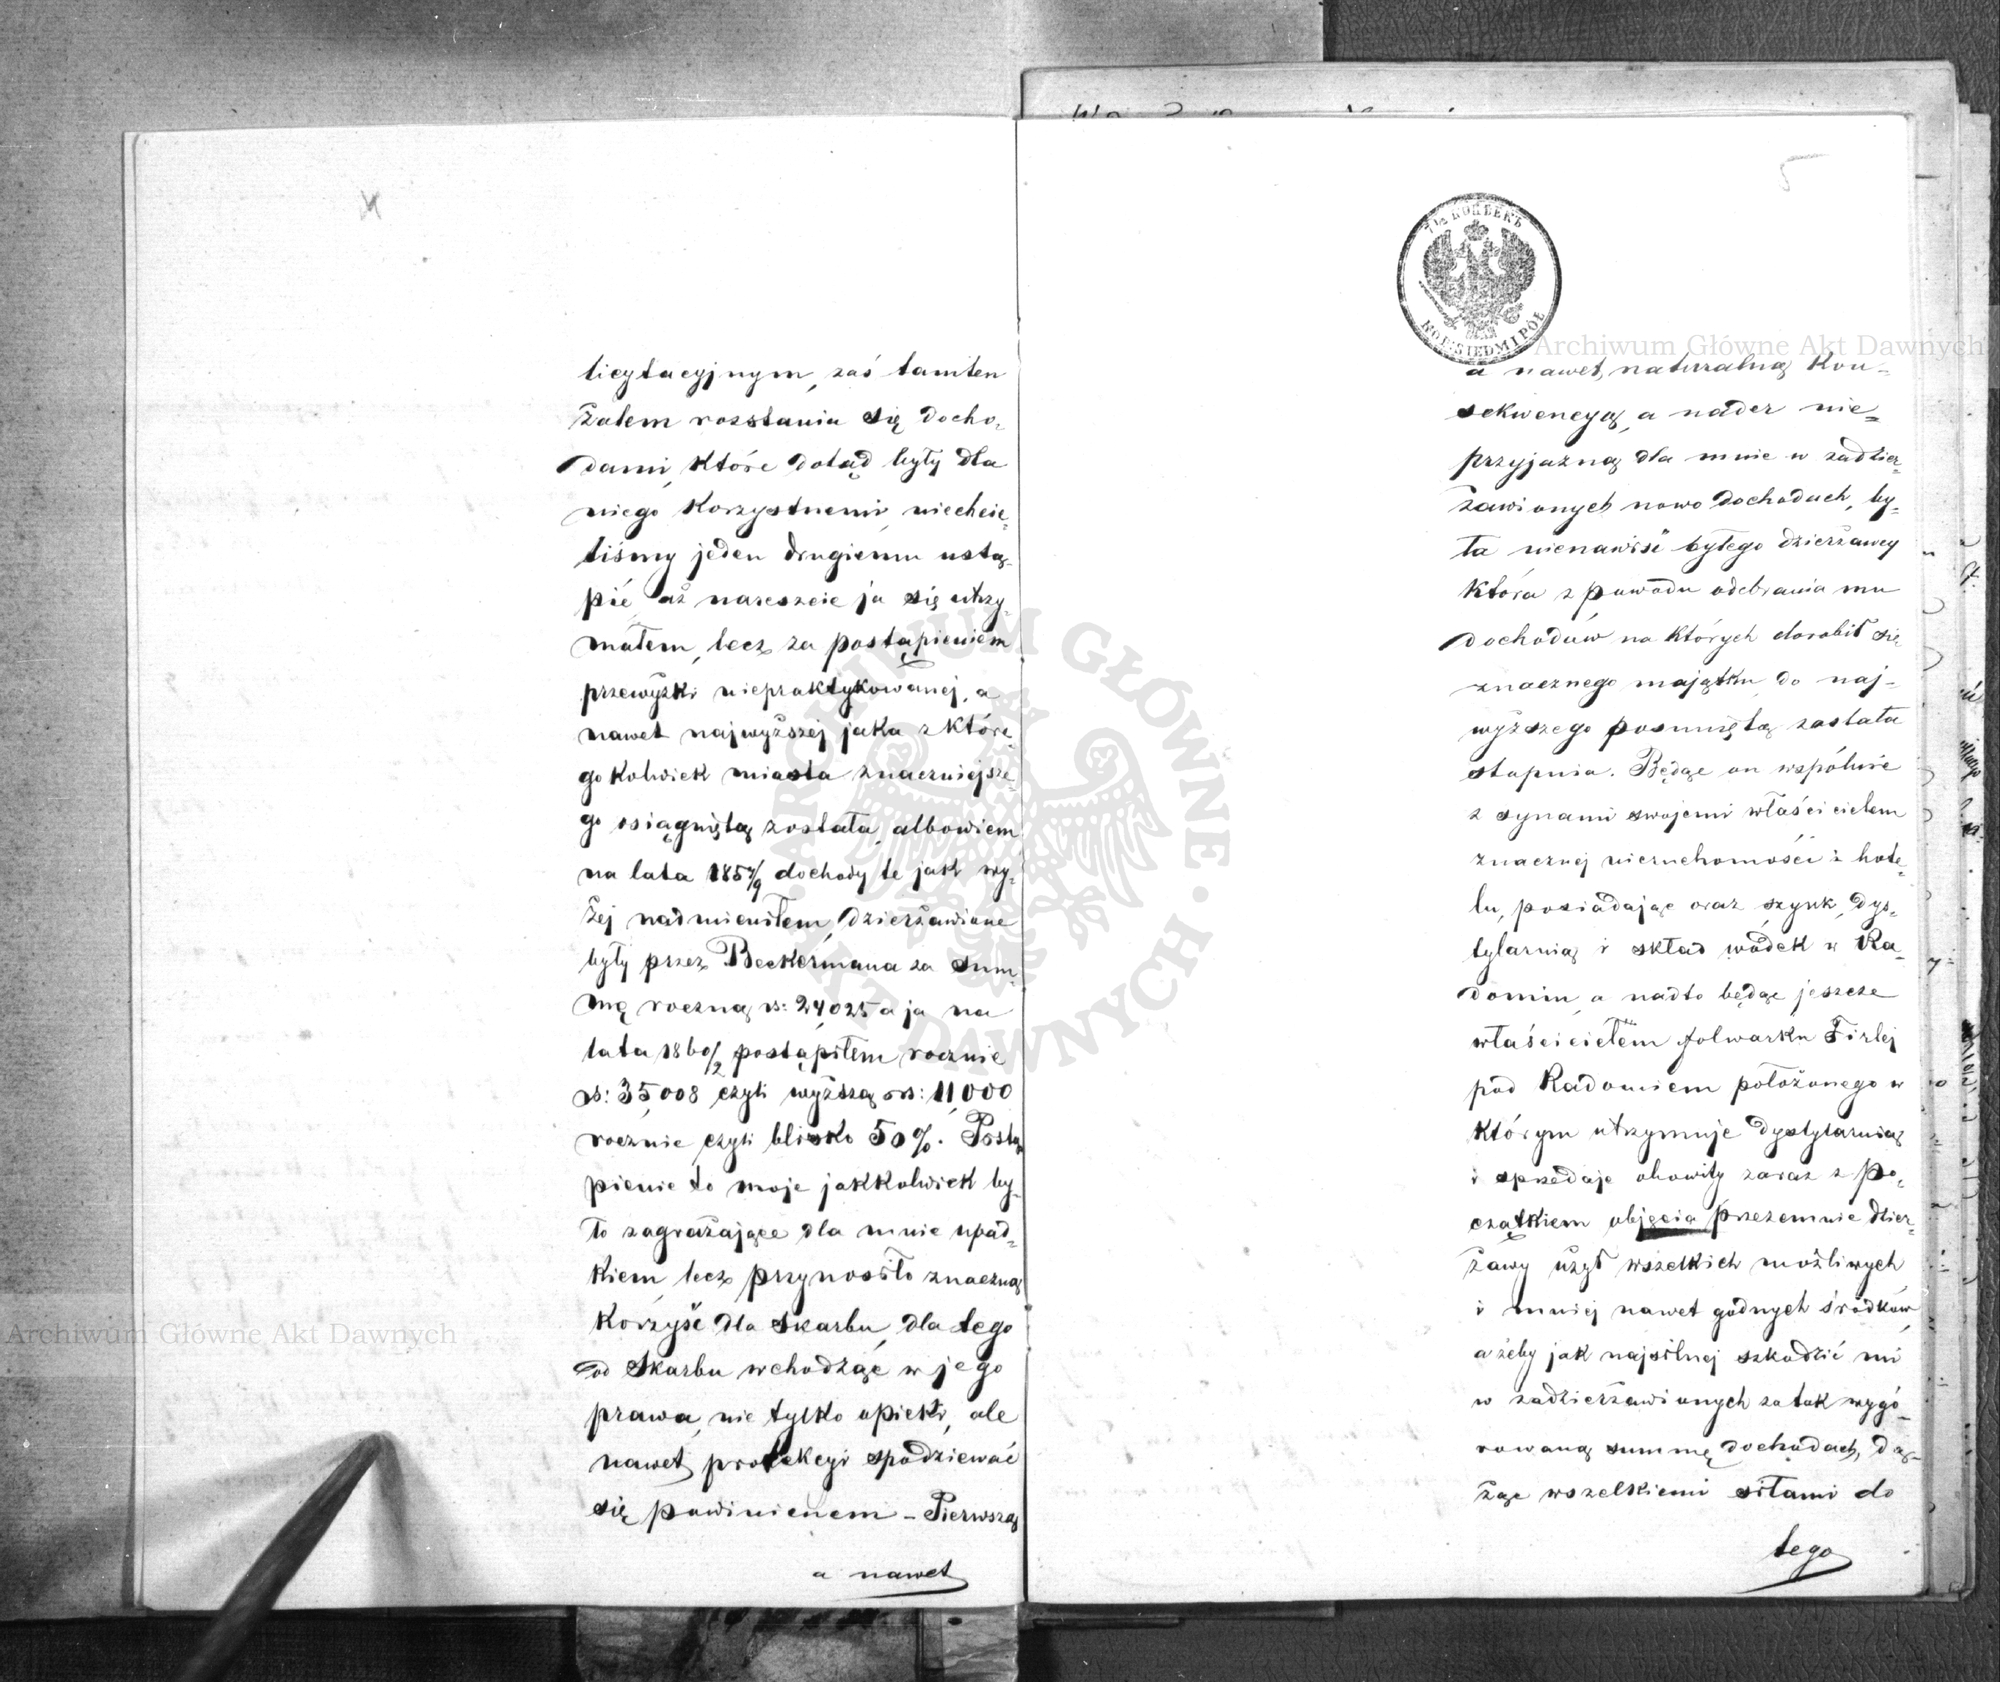 licytacyjnym, zaś tamten
żalem rozstania się docho-
dami, które dotąd były dla
niego korzystnemi, niechcie-
liśmy jeden drugiemu ustą-
pić, aż nareszcie ja się utrzy-
małem, lecz za postąpieniem
przewyżki niepraktykowanej, a
nawet najwyższej jaka z które-
gokolwiek miasta znaczniejsze-
go osiągniętą została, albowiem
na lata 1857/9 dochody te jak wy-
żej nadmieniłem, dzierżawione
były przez Beckermana za sum-
mę roczną rs: 24,025 a ja na
lata 1860/2 postąpiłem rocznie
rs: 35,008 czyli wyższą rs: 11,000
rocznie czyli blisko 50%. Postą
pienie to moje jakkolwiek by-
ło zagrażające dla mnie upad-
kiem, lecz przynosiło znaczną
korzyść dla Skarbu, dla tego
od Skarbu wchodząc w jego
prawa, nie tylko opieki, ale
nawet protekcyi spodziewać
się powinienem – Pierwszą
a nawet
5
7½ КОПѢЕКЪ
KOP: SIEDM I PÓŁ
a nawet, naturalną kon-
sekwencyą, a nader nie-
przyjazną dla mnie w zadzier-
żawionych nowo dochodach, by-
ła nienawiść byłego dzierżawcy
która z powodu odebrania mu
dochodów na których dorobił się
znacznego majątku, do naj-
wyższego posuniętą została
stopnia. Będąc on wspólnie
z synami swojemi właścicielem
znacznej nieruchomości i hote-
lu, posiadając oraz szynk, dys-
tylarnią i skład wódek w Ra-
domiu, a nadto będąc jeszcze
właścicielem folwarku Firlej
pod Radomiem położonego w
którym utrzymuje dystylarnią
i sprzedaje okowity zaraz z po-
czątkiem objęcia przezemnie dzier-
żawy użył wszelkich możliwych
i mniej nawet godnych środków,
ażeby jak najsilniej szkodzić mi
w zadzierżawionych za tak wygó-
rowaną summę dochodach, dą-
żąc wszelkiemi siłami do
tego
Archiwum Główne Akt Dawnych
Archiwum Główne Akt Dawnych
ARCHIWUM GŁÓWNE AKT DAWNYCH